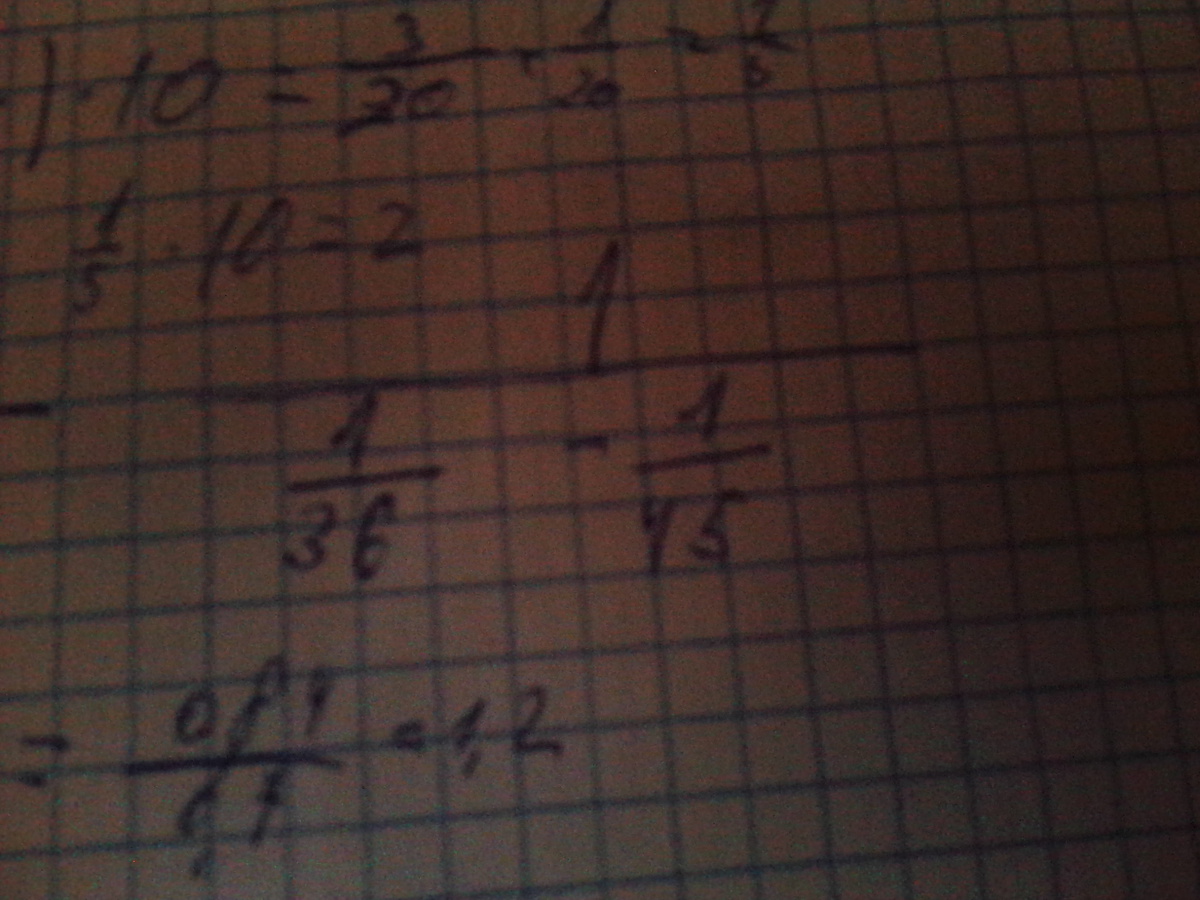 ) · 10 = 3/20 · 1/20 = 1/5
1/5 · 10 = 2
1
1/36 - 1/45
= 1,2